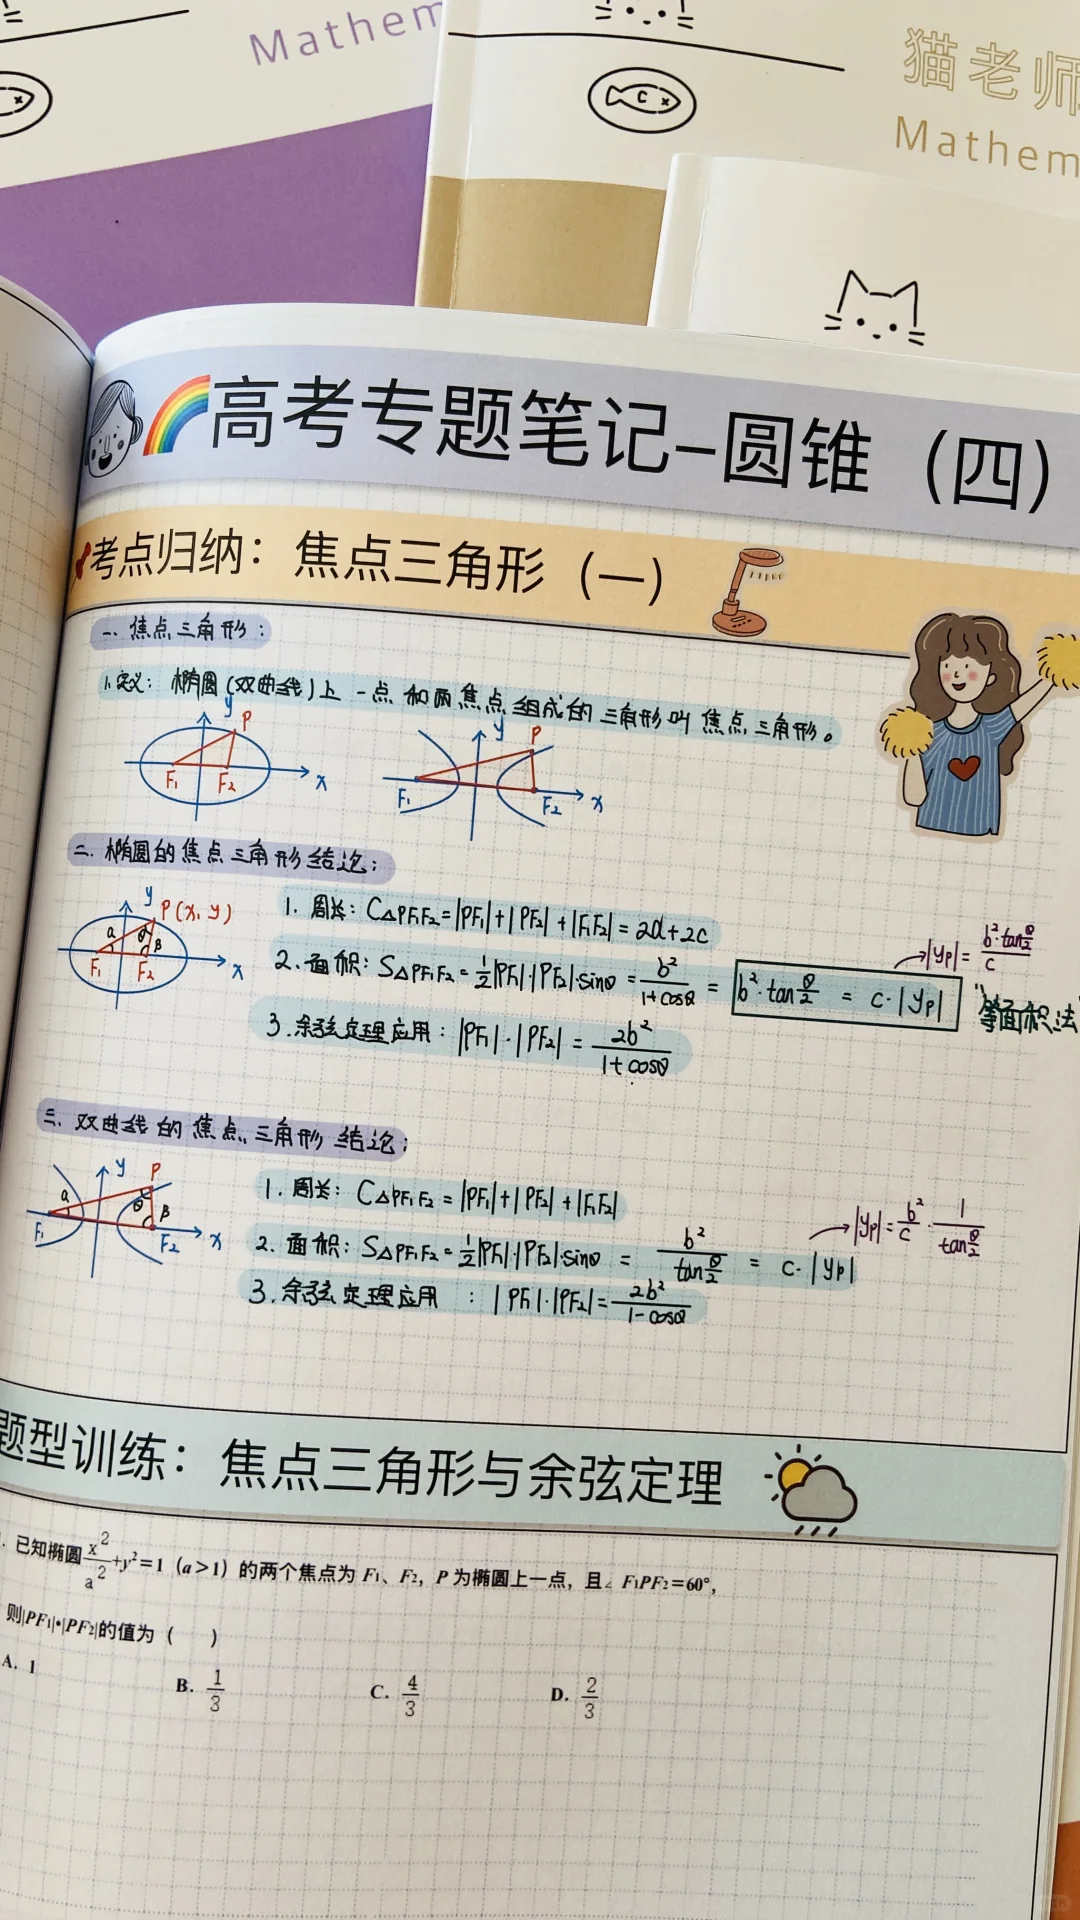 Mathem
C
猫老师
Mathem
高考专题笔记-圆锥（四）
考点归纳：焦点三角形（一）
一、焦点三角形：
1、定义：椭圆(双曲线)上一点和两焦点组成的三角形叫焦点三角形。
y P F₁ F₂ x
y P F₁ F₂ x
二、椭圆的焦点三角形结论；
y P(x, y) α θ β F₁ F₂ x
1. 周长：C△PF₁F₂=|PF₁|+|PF₂|+|F₁F₂|=2a+2c
|yp|= b²·tan θ/2 / c
2. 面积：S△PF₁F₂=½|PF₁|·|PF₂|·sinθ = b²/(1+cosθ) = b²·tan θ/2 = c·|yp|
"等面积法
3. 余弦定理应用：|PF₁|·|PF₂| = 2b²/(1+cosθ)
三、双曲线的焦点三角形结论；
y P α θ β F₁ F₂ x
1. 周长：C△PF₁F₂=|PF₁|+|PF₂|+|F₁F₂|
|yp|= b²/c · 1/tan θ/2
2. 面积：S△PF₁F₂=½|PF₁|·|PF₂|sinθ = b²/tan θ/2 = c·|yp|
3. 余弦定理应用：|PF₁|·|PF₂|= 2b²/(1-cosθ)
题型训练：焦点三角形与余弦定理
. 已知椭圆x²/a²+y²=1（a>1）的两个焦点为 F₁、F₂，P 为椭圆上一点，且∠F₁PF₂=60°，
则|PF₁|•|PF₂|的值为（ ）
A. 1 B. 1/3 C. 4/3 D. 2/3